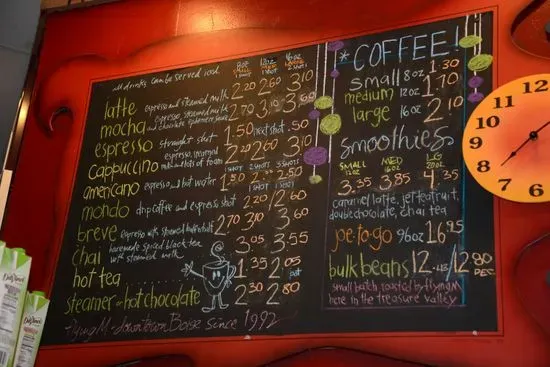 all drinks can be served iced
8oz 12oz 16oz
1 shot
latte espresso and steamed milk 2.20 2.60 3.10
mocha espresso, steamed milk and chocolate 2.70 3.10 3.60
espresso straight shot 1.50 next shot .50
cappuccino espresso, steamed milk and lots of foam 2.20 2.60 3.10
americano espresso and hot water 1.50 2.00 2.50
mondo drip coffee and espresso shot 2.20 2.60
breve espresso with steamed half & half 2.70 3.10 3.60
chai homemade spiced black tea with steamed milk 3.05 3.55
hot tea 1.35 2.05 pot
steamer or hot chocolate 2.30 2.80
flying M - downtown Boise since 1992
* COFFEE!
small 8oz 1.30
medium 12oz 1.70
large 16oz 2.10
smoothies
SMALL 12oz MED 16oz LG 20oz
3.35 3.85 4.35
caramel latte, jet tea fruit,
double chocolate, chai tea
joe-to-go 96oz 16.95
bulk beans 12. 12.80 DEC.
small batch roasted by flying M
here in the treasure valley
DaVinci
11 12 10 9 8 7 6